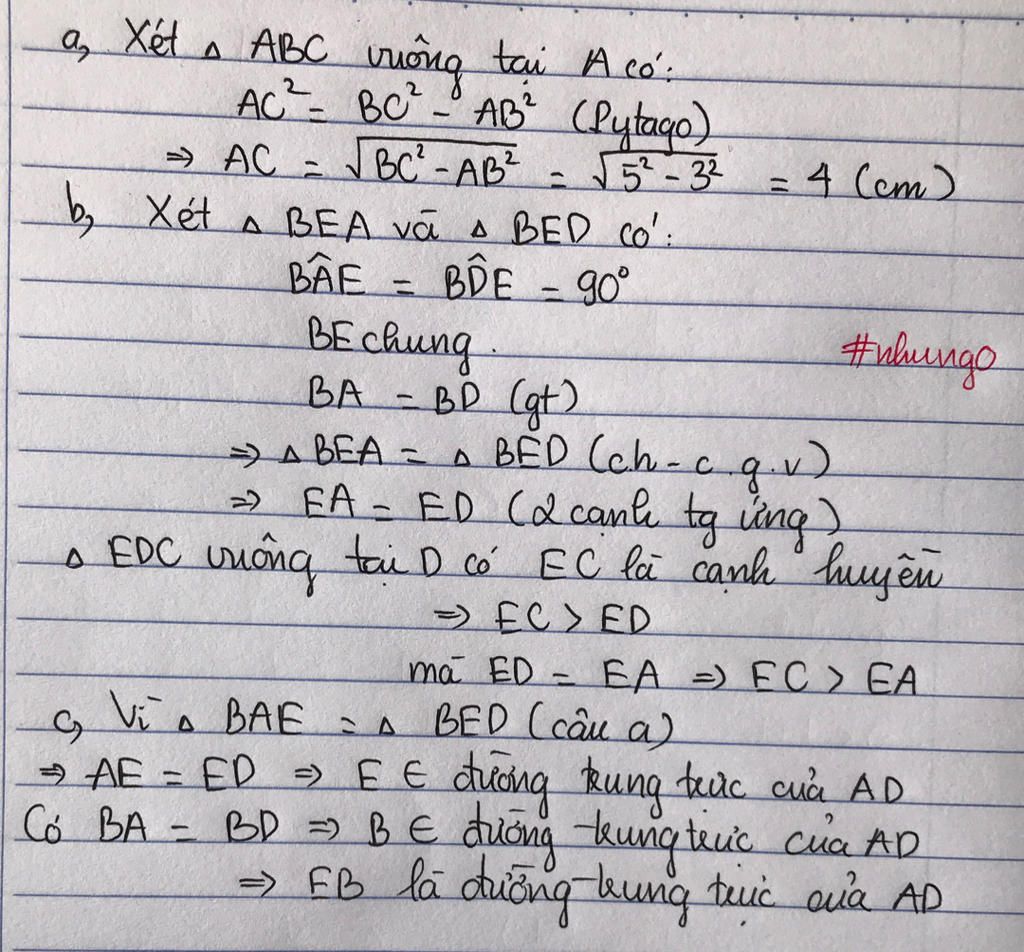 a, Xét △ ABC vuông tại A có:
AC² = BC² - AB² (Pytago)
⇒ AC = √(BC² - AB²) = √(5² - 3²) = 4 (cm)
b, Xét △ BEA và △ BED có:
BÂE = BD̂E = 90°
BE chung.
#nhungo
BA = BD (gt)
⇒ △ BEA = △ BED (ch - c.g.v)
⇒ EA = ED (2 cạnh tg ứng)
△ EDC vuông tại D có EC là cạnh huyền
⇒ EC > ED
mà ED = EA ⇒ EC > EA
c, Vì △ BAE = △ BED (câu a)
⇒ AE = ED ⇒ E ∈ đường trung trực của AD
Có BA = BD ⇒ B ∈ đường trung trực của AD
⇒ EB là đường trung trực của AD